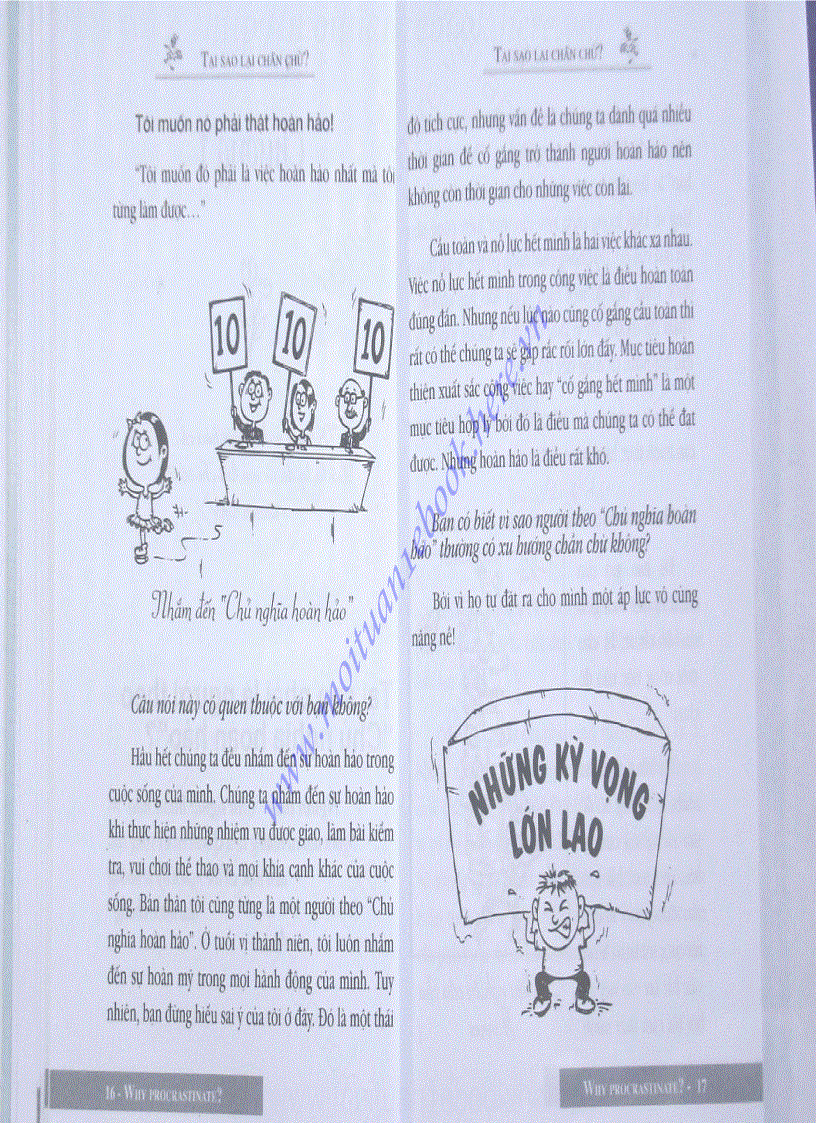 TẠI SAO LẠI CHẦN CHỪ?
Tôi muốn nó phải thật hoàn hảo!
“Tôi muốn đó phải là việc hoàn hảo nhất mà tôi
từng làm được…”
10
10
10
Nhắm đến "Chủ nghĩa hoàn hảo"
Câu nói này có quen thuộc với bạn không?
Hầu hết chúng ta đều nhắm đến sự hoàn hảo trong
cuộc sống của mình. Chúng ta nhắm đến sự hoàn hảo
khi thực hiện những nhiệm vụ được giao, làm bài kiểm
tra, vui chơi thể thao và mọi khía cạnh khác của cuộc
sống. Bản thân tôi cũng từng là một người theo “Chủ
nghĩa hoàn hảo”. Ở tuổi vị thành niên, tôi luôn nhắm
đến sự hoàn mỹ trong mọi hành động của mình. Tuy
nhiên, bạn đừng hiểu sai ý của tôi ở đây. Đó là một thái
16 - WHY PROCRASTINATE?
TẠI SAO LẠI CHẦN CHỪ?
độ tích cực, nhưng vấn đề là chúng ta dành quá nhiều
thời gian để cố gắng trở thành người hoàn hảo nên
không còn thời gian cho những việc còn lại.
Cầu toàn và nỗ lực hết mình là hai việc khác xa nhau.
Việc nỗ lực hết mình trong công việc là điều hoàn toàn
đúng đắn. Nhưng nếu lúc nào cũng cố gắng cầu toàn thì
rất có thể chúng ta sẽ gặp rắc rối lớn đấy. Mục tiêu hoàn
thiện xuất sắc công việc hay “cố gắng hết mình” là một
mục tiêu hợp lý bởi đó là điều mà chúng ta có thể đạt
được. Nhưng hoàn hảo là điều rất khó.
Bạn có biết vì sao người theo “Chủ nghĩa hoàn
hảo” thường có xu hướng chần chừ không?
Bởi vì họ tự đặt ra cho mình một áp lực vô cùng
nặng nề!
NHỮNG KỲ VỌNG
LỚN LAO
WHY PROCRASTINATE? - 17
www.moituan1ebook.here.vn